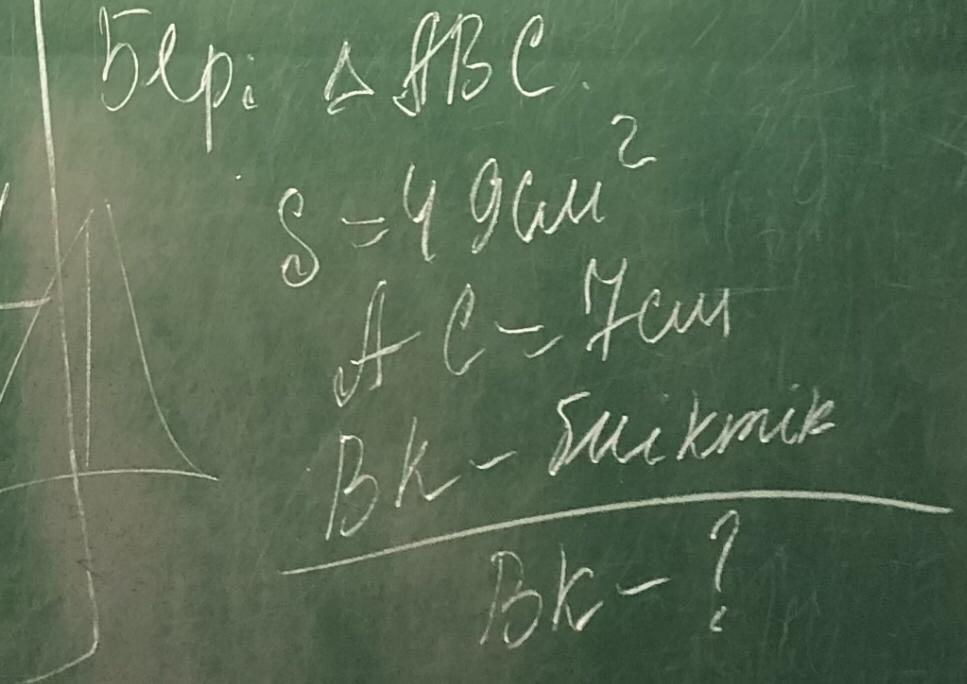 Бер: △ ABC.
S = 49см²
AC = 7см
BK - биіктік
BK - ?